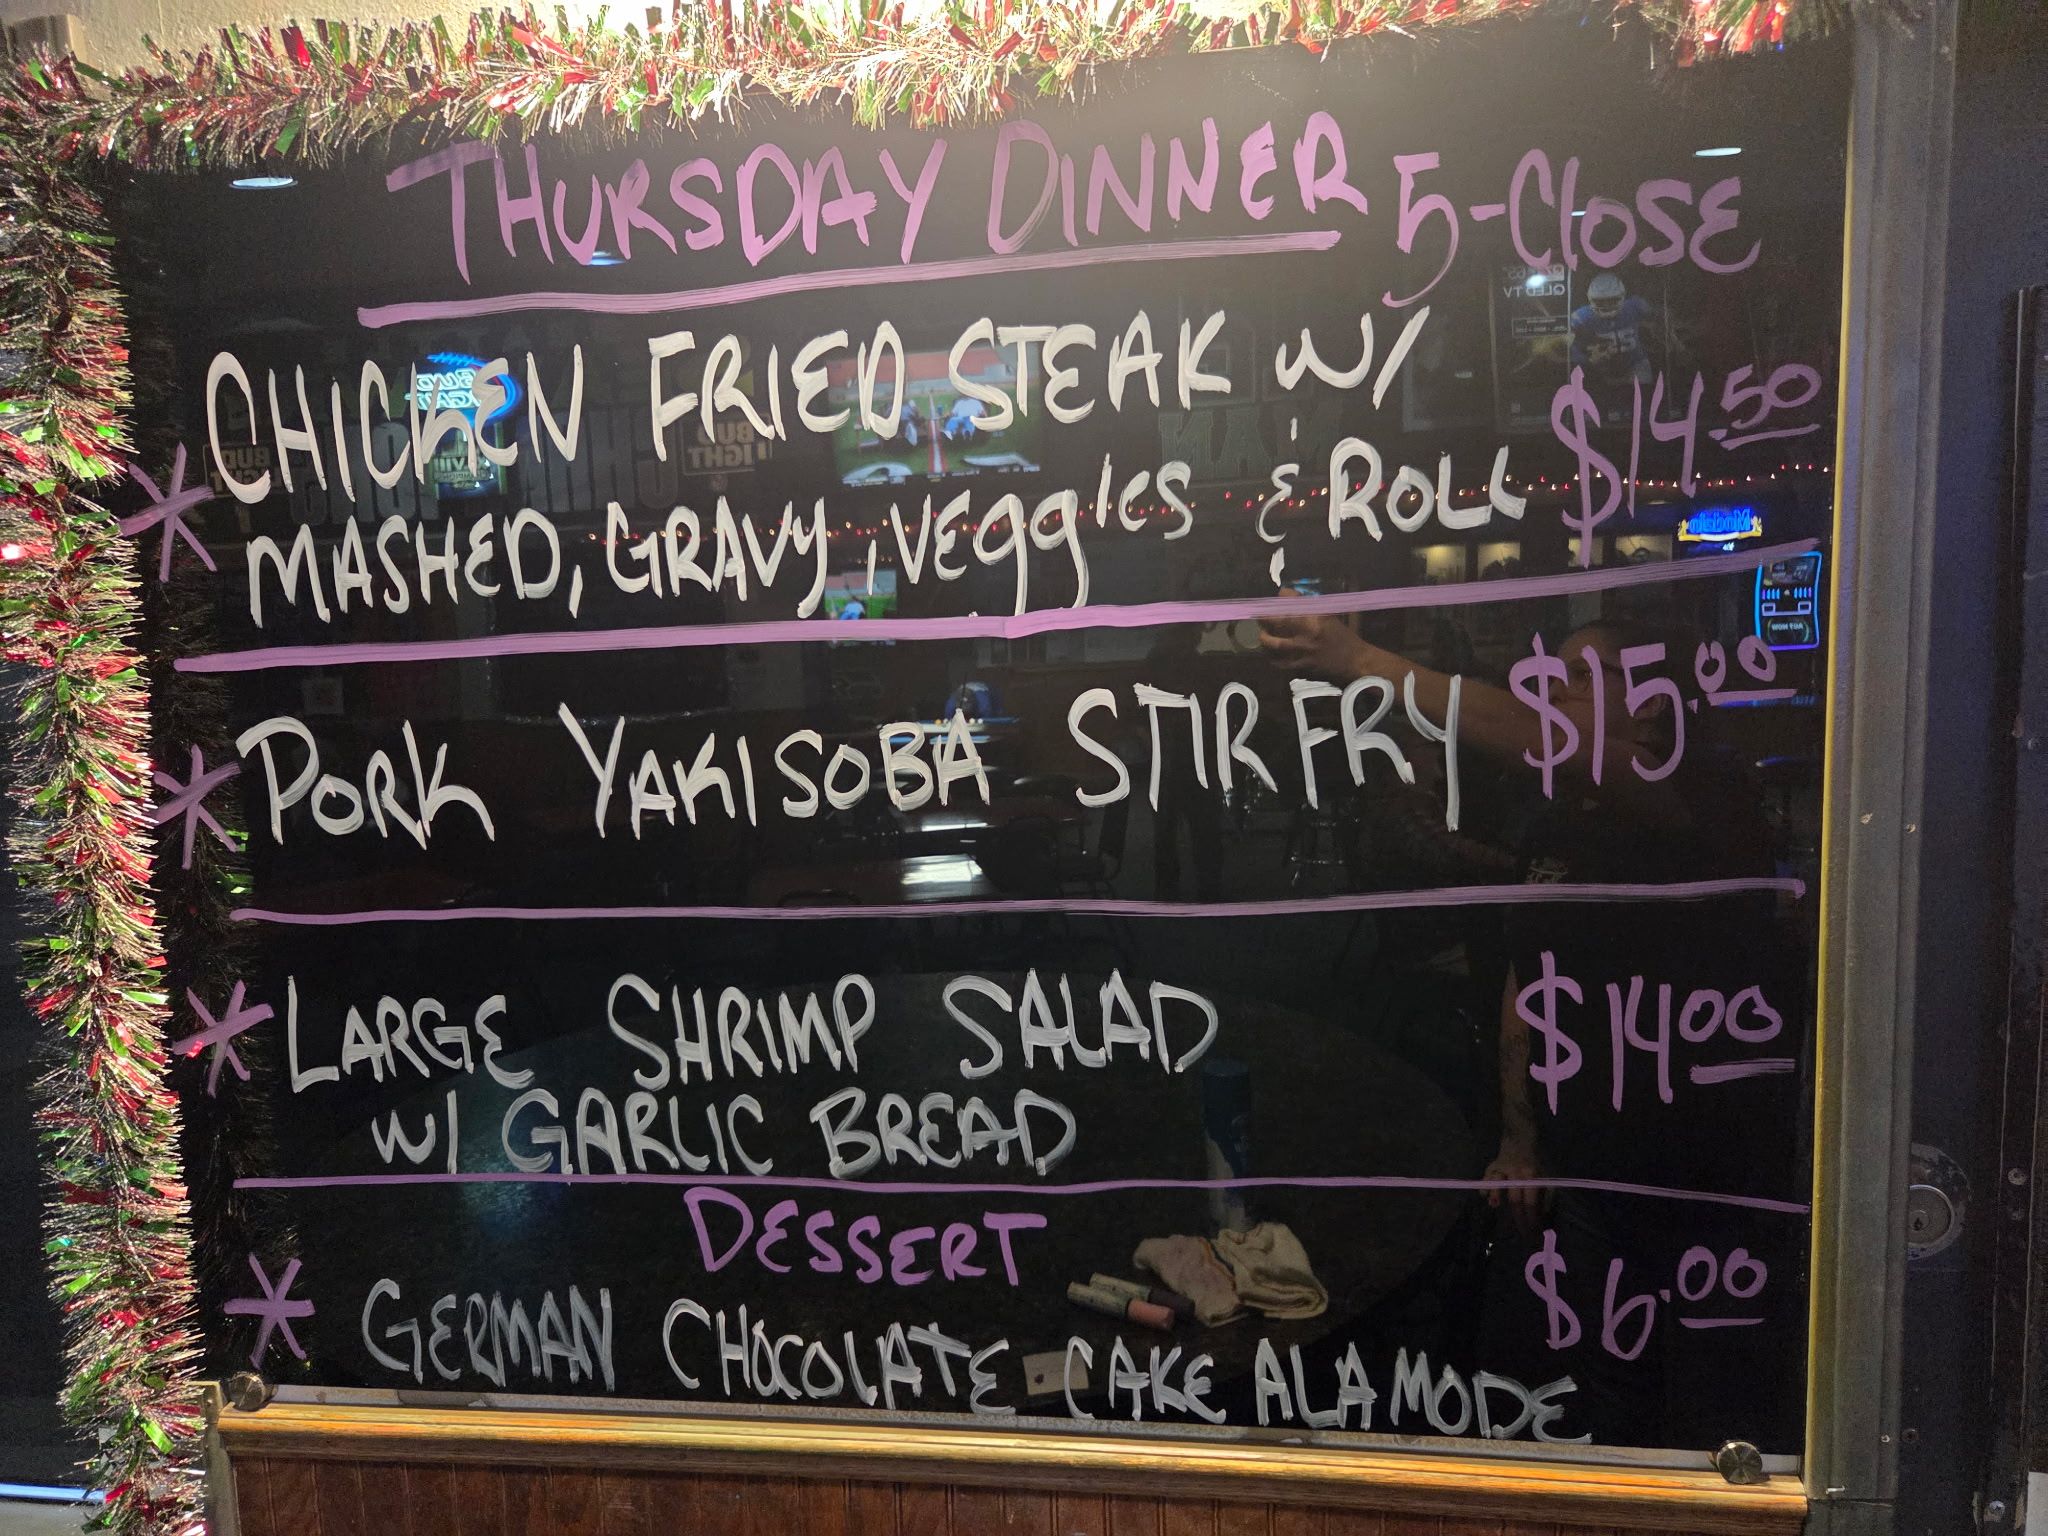 THURSDAY DINNER 5-CLOSE
* CHICKEN FRIED STEAK W/
MASHED, GRAVY, VEGGIES & ROLL $14.50
* PORK YAKISOBA STIR FRY $15.00
* LARGE SHRIMP SALAD $14.00
W/ GARLIC BREAD
DESSERT
* GERMAN CHOCOLATE CAKE ALAMODE $6.00
BUD LIGHT
QLED TV
Modelo